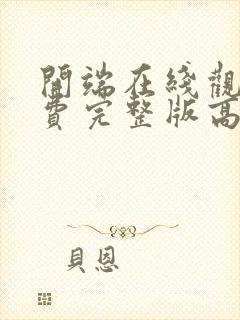 開端在綫觀
費完整版高
貝恩